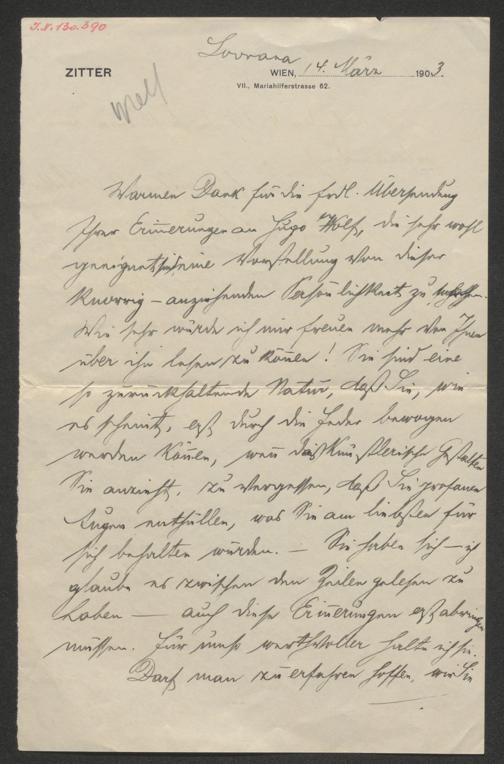 I.N. 130.590
Lovrana
ZITTER
WIEN, 14. März 1903.
VII., Mariahilferstrasse 62.
Warmen Dank für die frdl. Übersendung
Ihrer Erinnerungen an Hugo Wolf, die sehr wohl
geeignet sind eine Vorstellung von dieser
knorrig – anziehenden Persönlichkeit zu
Wie sehr würde ich mir freuen mehr von Ihnen
über ihn lesen zu können! Sie sind eine
so zurückhaltende Natur, daß Sie, wie
es scheint, erst durch die Feder bewogen
werden können, wenn das künstlerische Gestalten
Sie anzieht, zu vergessen, daß Sie profanen
Augen enthüllen, was Sie am liebsten für
sich behalten würden. — Sie haben sich – ich
glaube es zwischen den Zeilen gelesen zu
haben — auch diese Erinnerungen erst abringen
müssen. Für umso wertvoller halte ich sie.
Darf man zu erfahren hoffen, wie Sie